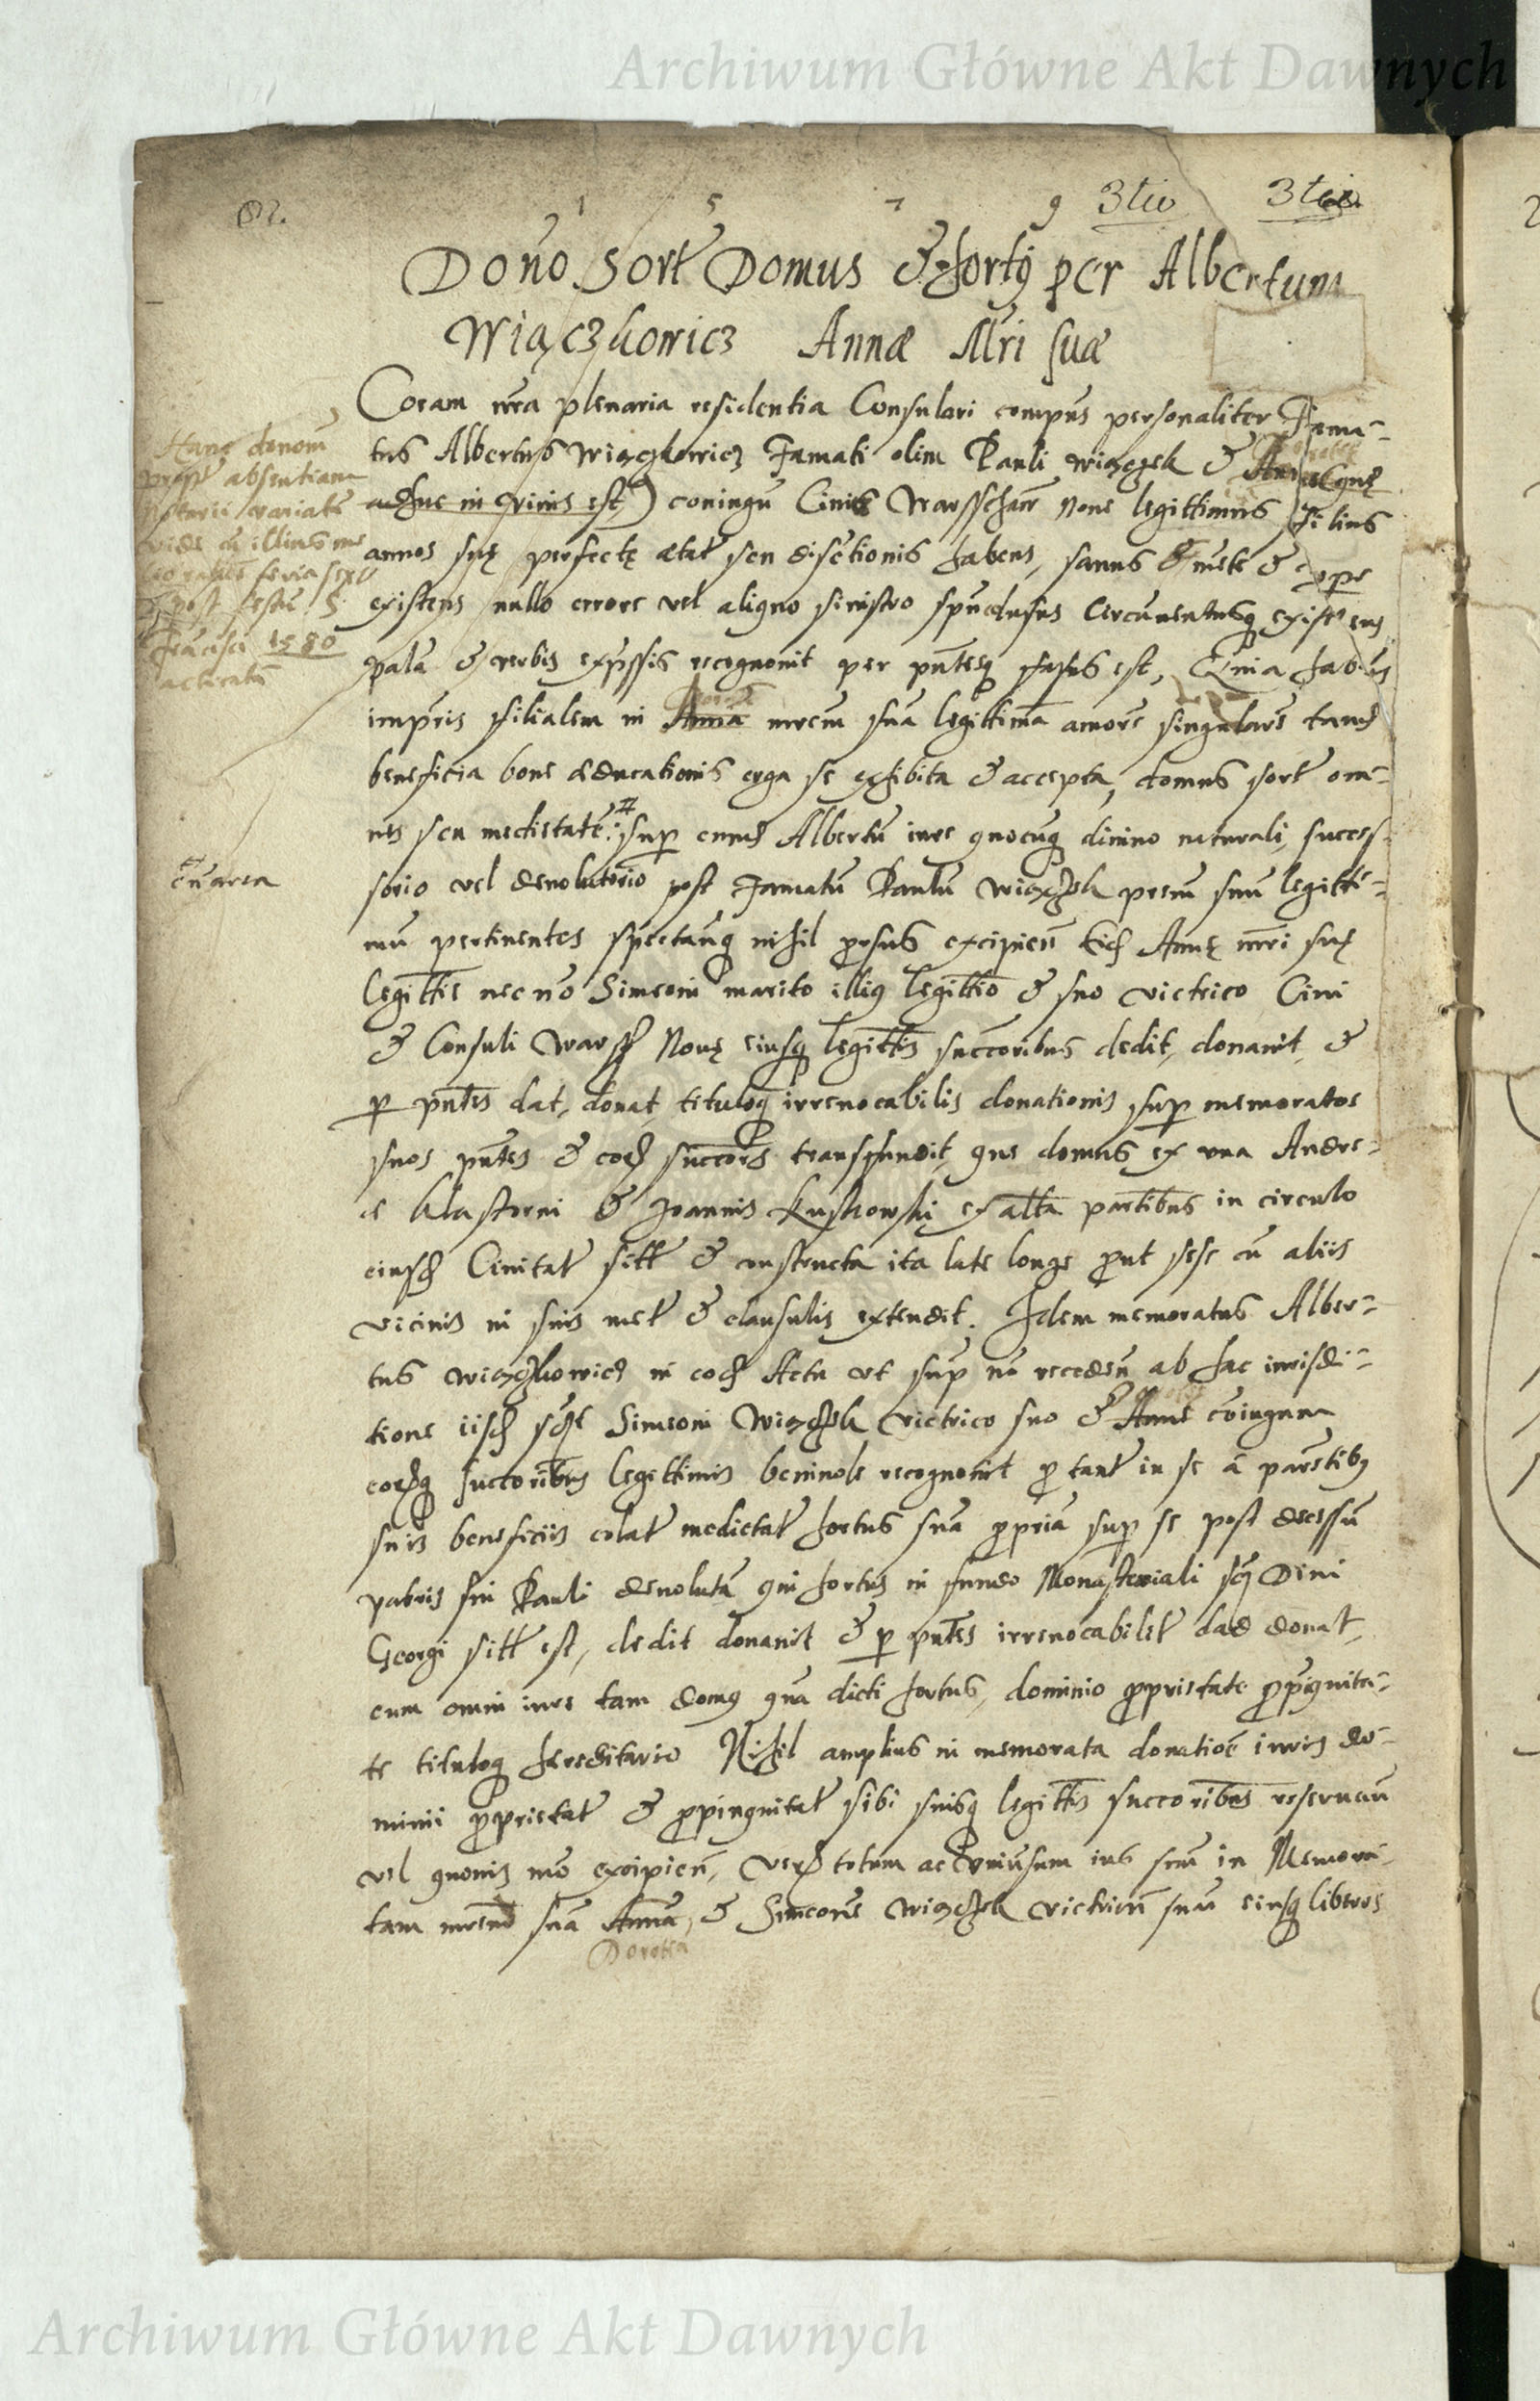 Archiwum Główne Akt Dawnych
82. 1 5 7 9 3tio 3tio
Dono Sort Domus & Horti per Albertum
Wiączkowicz Annæ Mri suæ
Coram nra plenaria residentia Consulari compns personaliter Fama-
tus Albertus Wiączkowicz Famati olim Pauli Wiączek &
adhuc in vivis est) coniugu Civis Warsschavie Nove legittimus Filius
annos suę perfectę ætat seu discretionis habens, sanus mete & corpe
existens nullo errore vel aligno sinistro circumventusq existens
pala & verbis expssis recognovit per pntesq fassus est, Quia habes
impris filialem in Anna mrem sua legittima amore singulare
beneficia bone educationis erga se exhibita & accepta, domus sort om-
nes seu medietate sup eund Albertu iure quocuq divino naturali, succes-
sorio vel devolutorio post Famatu Paulu Wiączek prem suu legitti-
mu pertinentes spectanq nihil prorsus excipien eid Annę mri suę
legittie nec no Simeoni marito illius legittio & suo victrico Civi
& Consuli Warsch Novę eiusq legittis succoribus dedit, donavit, &
p pntes dat, donat, tituloq irrevocabilis donationis sup memoratos
suos pntes & eord succores transfundit, que domus ex una Andre-
e Klastorni & Joannis Kuskowski ex alta partibus in circulo
eiusd Civitat sitt & constructa ita late longe prout sese cu aliis
vicinis in suis met & clausulis extendit. Idem memoratus Alber-
tus Wiączkowicz in eod Actu ut sup no receden ab hac iurisdi-
tione iisd Simeoni Wiączek victrico suo & Anne coniugum
eordq succoribus legittimis benivole recognovit p tant in se a paretibus
suis beneficiis colat medietat hortus sua propria sup se post decessu
patris sui Pauli devoluta qui hortus in fundo Monasteriali Divi
Georgi sitt est, dedit donavit & p pntes irrevocabilet dad donat,
cum omni iure tam domus qua dicti hortus, dominio proprietate propiquita-
te tituloq hereditario Nihil amplius in memorata donatioe iuris do-
minii proprietat & propinquitat sibi suisq legittis succoribus reservavu
vel quovis mo excipien, verd totum ac universum ius suu in Memora-
tam mrem sua Anna, & Simeone Wiączek victricu suu eiusq liberos
Dorotea
Hanc donom
propt absentiam
Notarii
vide
feria sexta
post festu S.
Francisci 1580
cu area
Archiwum Główne Akt Dawnych